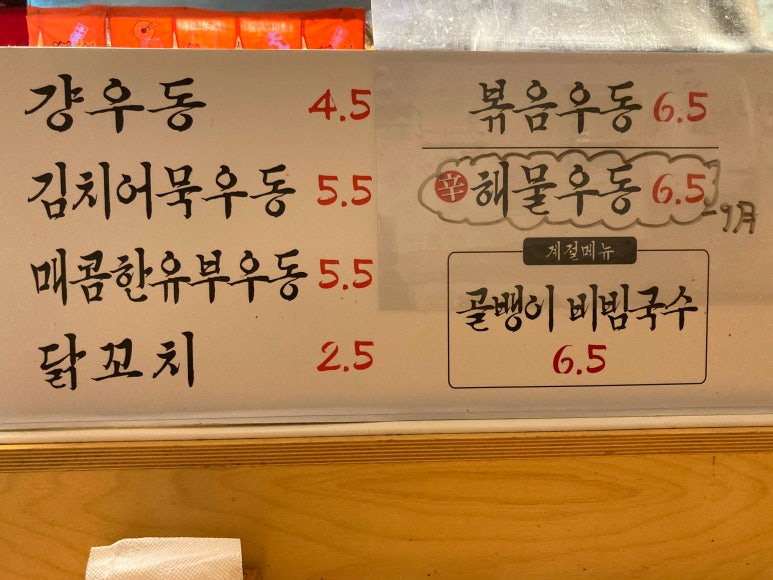 걍우동 4.5
김치어묵우동 5.5
매콤한유부우동 5.5
닭꼬치 2.5
볶음우동 6.5
辛 해물우동 6.5
-9月
계절메뉴
골뱅이 비빔국수
6.5